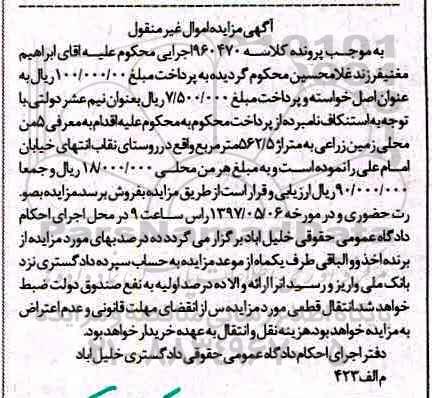 آگهی مزایده اموال غیر منقول
به موجب پرونده کلاسه ۹۶۰۴۷۰ اجرایی محکوم علیه اقای ابراهیم
مغنیفرزند غلامحسین محکوم گردیده به پرداخت مبلغ ۱۰۰/۰۰۰/۰۰۰ ریال به
عنوان اصل خواسته و پرداخت مبلغ ۷/۵۰۰/۰۰۰ ریال بعنوان نیم عشر دولتی، با
توجه به استنکاف نامبرده از پرداخت محکوم به محکوم علیه اقدام به معرفی ۵ من
محلی زمین زراعی به متراژ ۵۶۲/۵ متر مربع واقع در روستای نقاب انتهای خیابان
امام علی را نموده است و به مبلغ هر من محلسی ۱۸/۰۰۰/۰۰۰ ریال و جمعا
۹۰/۰۰۰/۰۰۰ ریال ارزیابی و قرار است از طریق مزایده بفروش برسد. مزایده بصو
رت حضوری و در مورخه ۱۳۹۷/۰۵/۰۶ راس ساعت ۹ در محل اجرای احکام
دادگاه عمومی حقوقی خلیل اباد برگزار می گردد ده درصد بهای مورد مزایده از
برنده اخذ و والباقی ظرف یکماه از موعد مزایده به حساب سپرده دادگستری نزد
بانک ملی واریز و رسید انرا ارائه و الا ده درصد اولیه به نفع صندوق دولت ضبط
خواهد شد. انتقال قطعی مورد مزایده س از انقضای مهلت قانونی و عدم اعتراض
به مزایده خواهد بود. هزینه نقل و انتقال به عهده خریدار خواهد بود.
دفتر اجرای احکام دادگاه عمومی حقوقی دادگستری خلیل اباد
م الف ۴۲۳